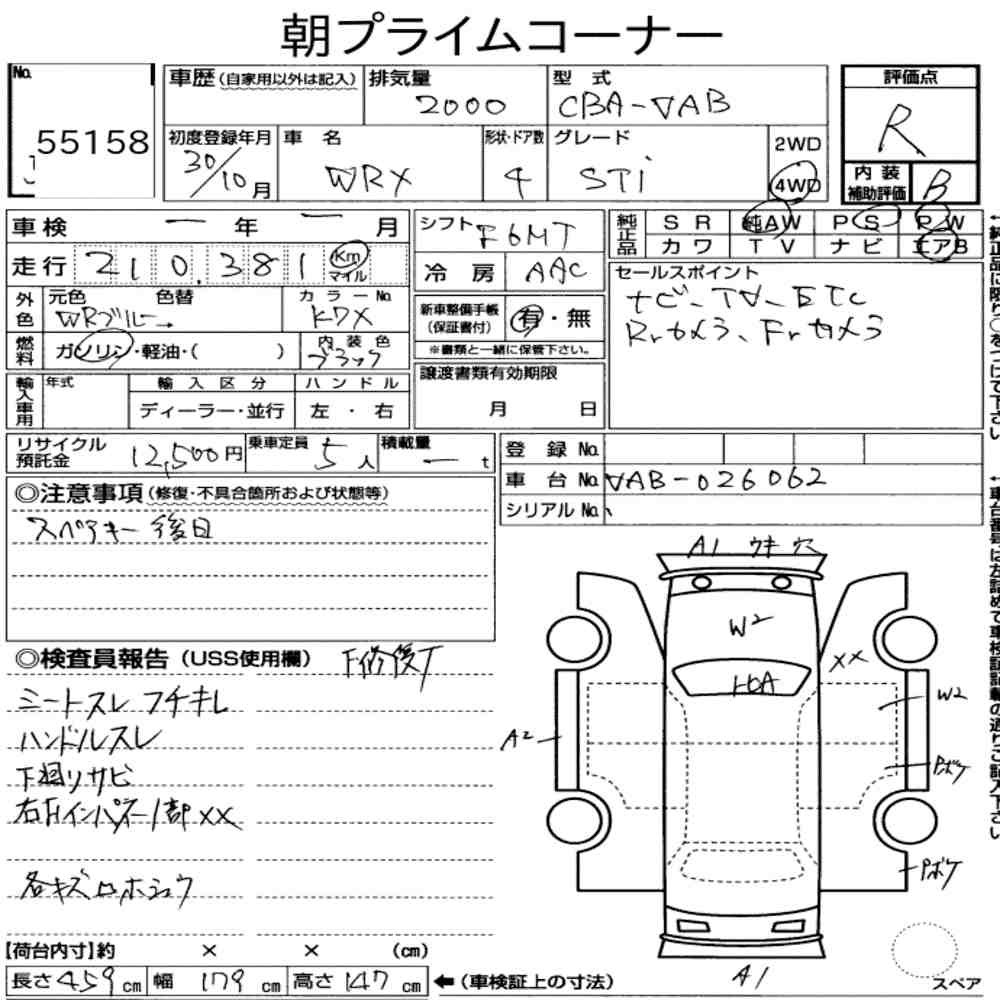 朝プライムコーナー
No.
55158
車歴(自家用以外は記入)
排気量
2000
型 式
CBA-VAB
評価点
R
初度登録年月
30/10月
車 名
WRX
形状・ドア数
4
グレード
STi
2WD
4WD
内装補助評価
B
車検 ー 年 ー 月
走行 210,381 Km マイル
外色
元色 色替
WRブルー→
カラーNo.
K7X
燃料
ガソリン・軽油・( )
内装色
ブラック
輸入車用
年式
輸入区分
ディーラー・並行
ハンドル
左・右
シフト F6MT
冷房 AAC
新車整備手帳(保証書付)
有・無
※書類と一緒に保管下さい。
譲渡書類有効期限
月 日
純正品
SR 純AW PS PW
カワ TV ナビ エアB
セールスポイント
ナビ-TV-ETC
Rrカメラ、Frカメラ
リサイクル預託金
12,500円
乗車定員
5人
積載量
ー t
登録No.
車台No. VAB-026062
シリアルNo.
◎注意事項(修復・不具合箇所および状態等)
スペアキー後日
◎検査員報告(USS使用欄)
シートスレ フチキレ
ハンドルスレ
下廻りサビ
各キズ
A1 ウキ 穴
W2
XX
W2
A2
Pボケ
Pボケ
A1
スペア
【荷台内寸】約 × × (cm)
長さ459cm 幅 179cm 高さ147cm
←(車検証上の寸法)